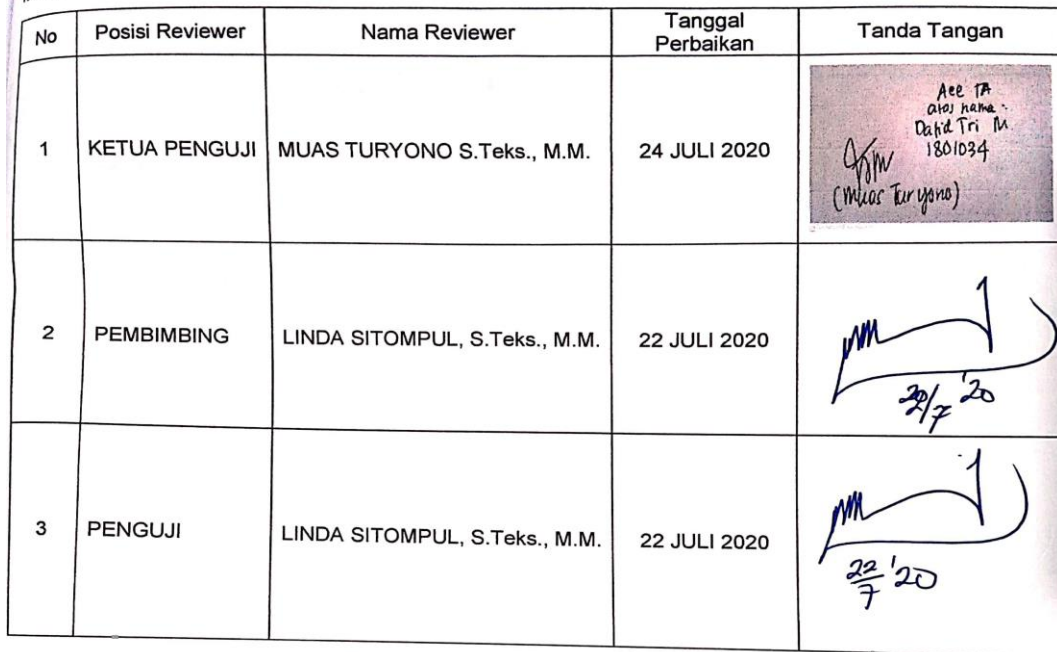 No
Posisi Reviewer
Nama Reviewer
Tanggal
Perbaikan
Tanda Tangan
1
KETUA PENGUJI
MUAS TURYONO S.Teks., M.M.
24 JULI 2020
Acc TA
atas nama :
Dafid Tri M.
1801034
(Muas Turyono)
2
PEMBIMBING
LINDA SITOMPUL, S.Teks., M.M.
22 JULI 2020
22/7 '20
3
PENGUJI
LINDA SITOMPUL, S.Teks., M.M.
22 JULI 2020
22/7 '20